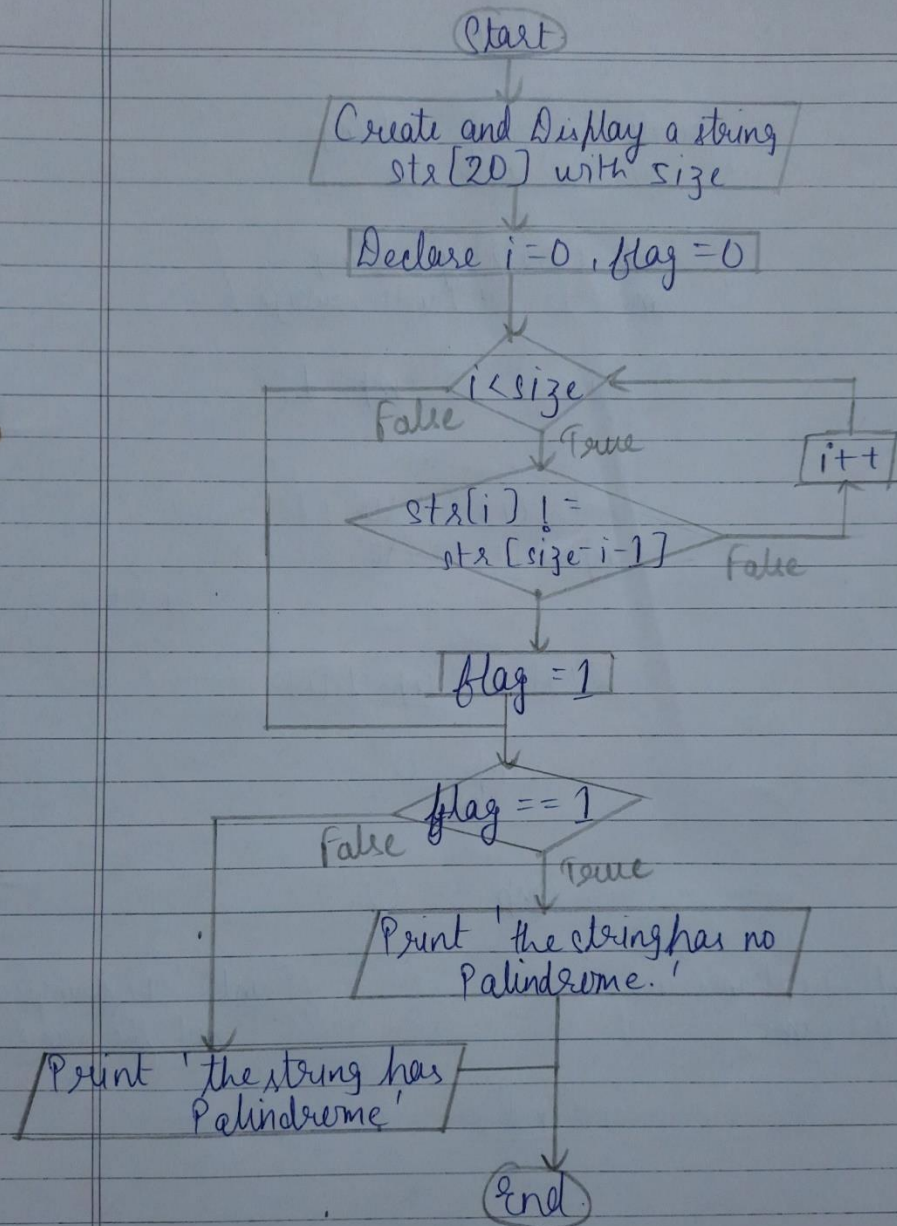 Start
Create and Display a string
str[20] with size
Declare i=0, flag=0
i<size
False
True
i++
str[i] !=
str[size-i-1]
False
flag = 1
flag == 1
False
True
Print 'the string has no
Palindrome.'
Print 'the string has
Palindrome'
End